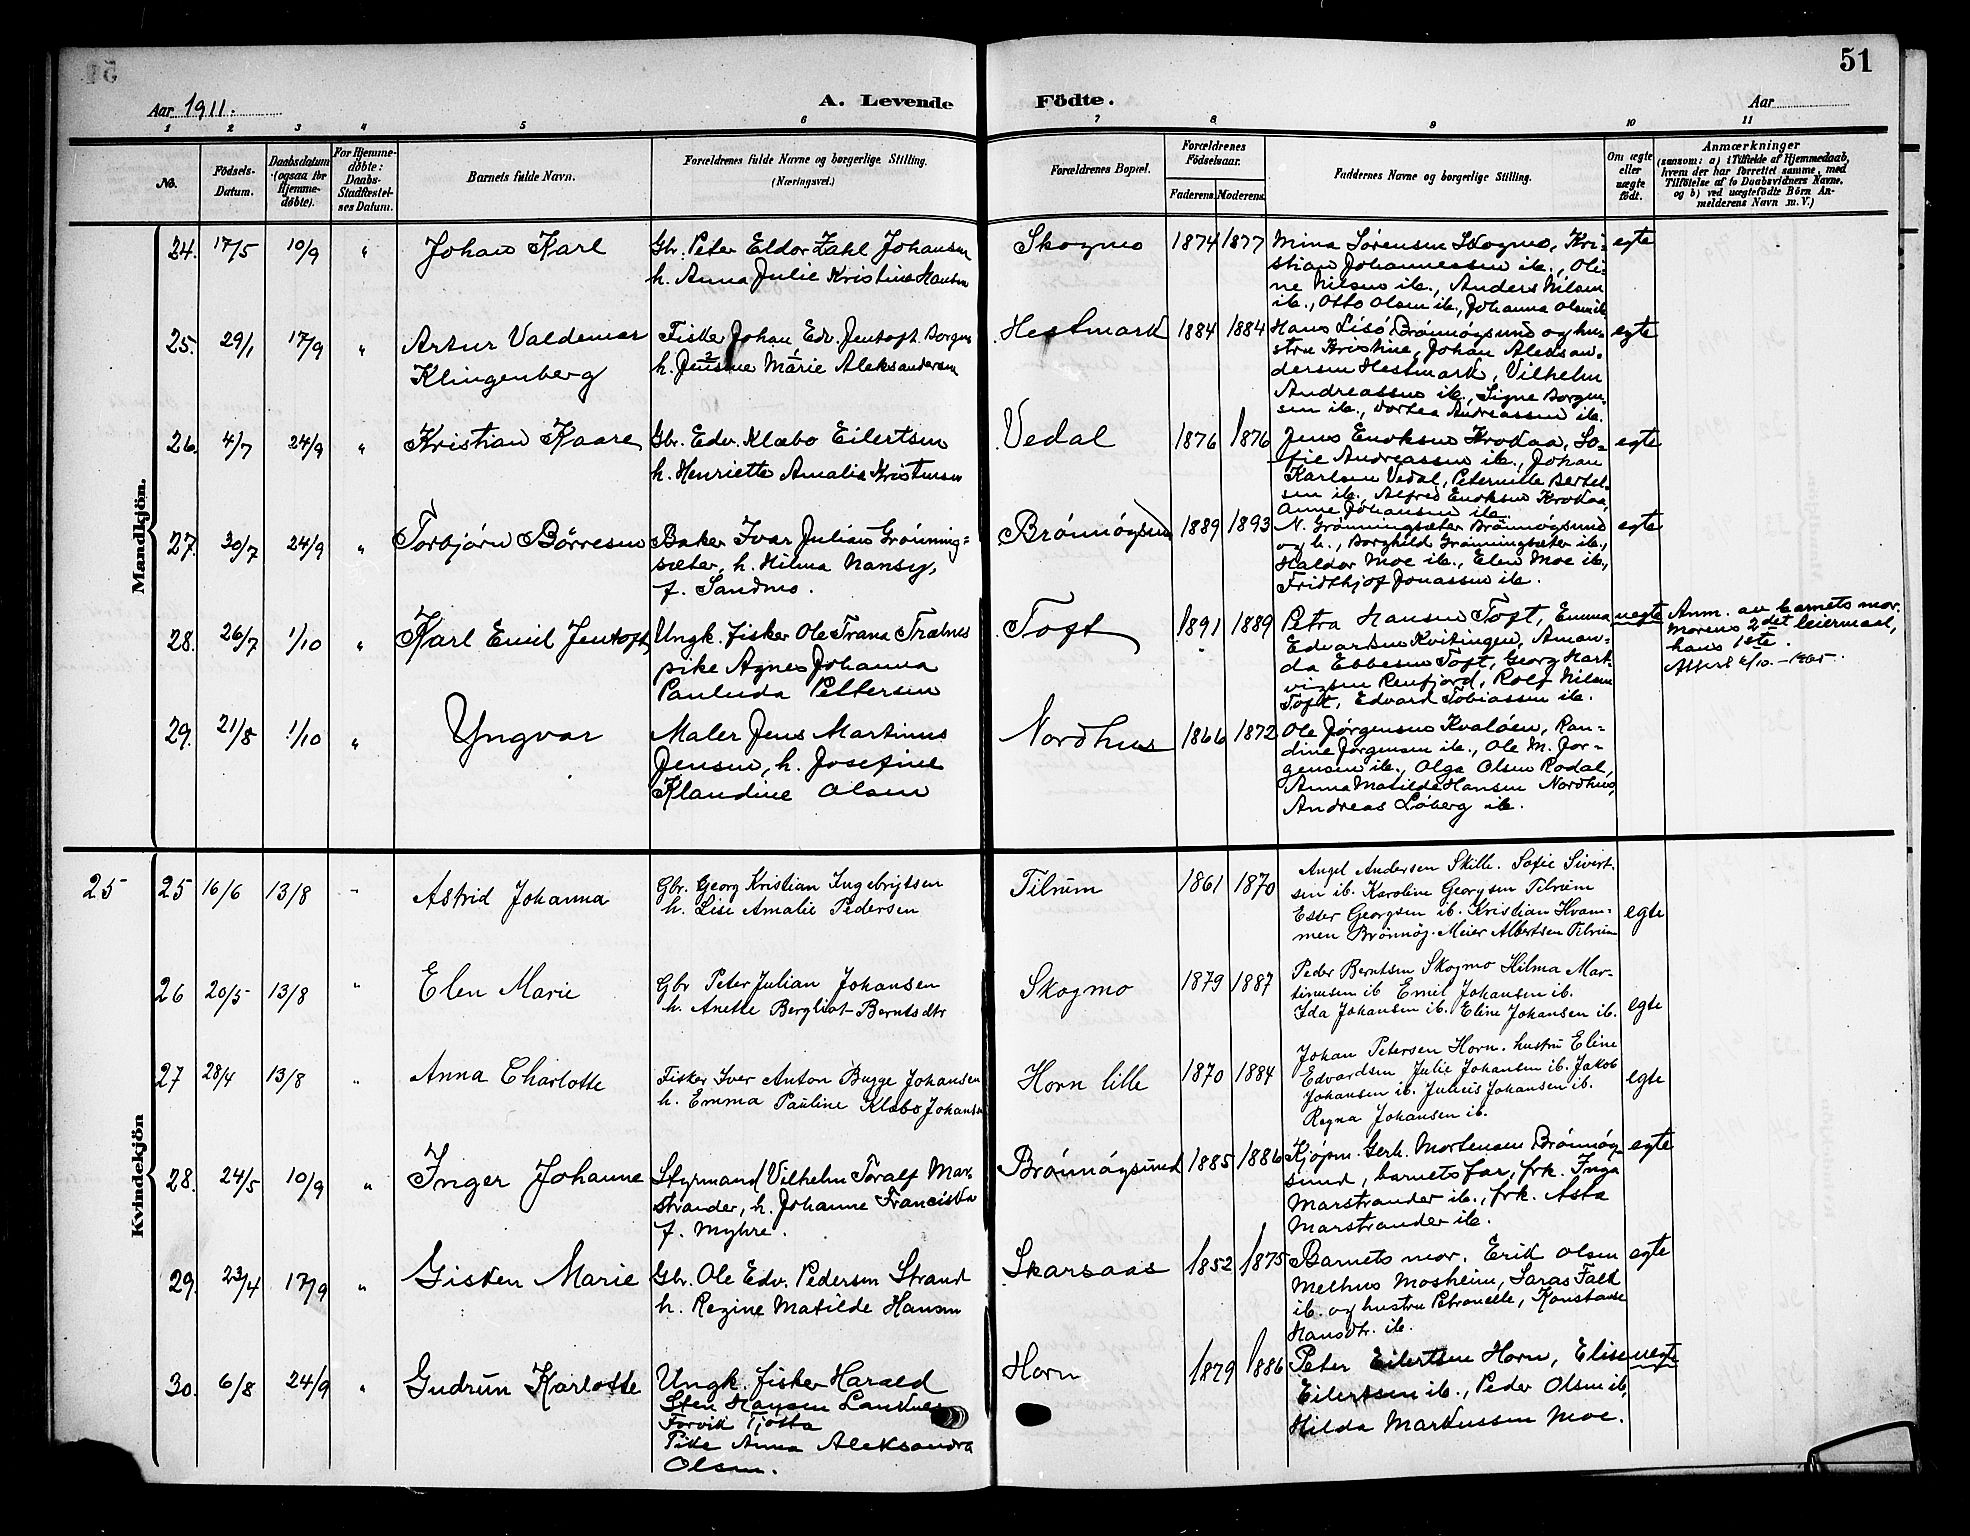 51
Aar 1911.
A. Levende Födte.
Aar
1 2 3 4 5 6 7 8 9 10 11
No.
Födsels-
Datum.
Daabsdatum
(ogsaa for
Hjemme-
døbte).
For Hjemme-
døbte:
Daabs-
Stadfæstel-
ses Datum.
Barnets fulde Navn.
Forældrenes fulde Navne og borgerlige Stilling.
(Næringsvei.)
Forældrenes Bopæl.
Forældrenes
Födselsaar.
Faderens. Moderens.
Faddernes Navne og borgerlige Stilling.
Om ægte
eller
uægte
født.
Anmærkninger
(saasom: a) i Tilfælde af Hjemmedaab,
hvem der har forrettet samme, med
Tilføielse af to Daabsvidners Navne,
og b) ved uægtefödte Börn An-
melderens Navn m. V.)
Mandkjön.
24. 17/5 10/9 "
Johan Karl
Gbr. Peter Eldor Zahl Johansen
h. Anna Julie Kristine Hansen
Skogmo 1874 1877
Mina Sørensen Skogmo, Kri-
stian Johannessen ib., Oli-
ne Nilsen ib., Anders Nilsen
ib., Otto Olsen ib., Johanna Olsen ib
egte
25. 29/1 17/9 "
Artur Valdemar
Klingenberg
Fisker Johan Edv. Jentoft Borgen
h. Jensine Marie Aleksandersen
2 1
Hestmark 1884 1884
Hans Lisø Brønnøysund og hu-
stru Kristine, Johan Aleksan-
dersen Hestmark, Vilhelm
Andreassen ib., Signe Borgen-
sen ib., Dortea Andreassen ib.
egte
26. 4/7 24/9 "
Kristian Kaare
Gbr. Edv. Klæbo Eilertsen
h. Henriette Amalia Kristensen
Vedal 1876 1876
Jens Enoksen Krokaa, So-
fie Andreassen ib., Johan
Karlsen Vedal, Peternille Bertel-
sen ib., Alfred Enoksen Krokaa,
Anne Johansen ib.
egte
27. 30/7 24/9 "
Torbjørn Børresen
Baker Ivar Julian Grønning-
sæter, h. Hilma Nansy,
f. Sandmo.
Brønnøysund 1889 1893
N. Grønningsæter Brønnøysund
og h., Borghild Grønningsæter ib.,
Haldor Moe ib., Elen Moe ib.,
Fridthjof Jonassen ib.
egte
28. 26/7 1/10 "
Karl Emil Jentoft
Ungk. fisker Ole Trana Trælnes
pike Agnes Johanna
Paulida Pettersen
Toft 1891 1889
Petra Hansen Toft, Emma
Edvardsen Kvitingen, Aman-
da Ebbesen Toft, Georg Hart-
vigsen Renfjord, Rolf Nilsen
Toft, Edvard Tobiassen ib.
uegte
Anm. av barnets mor.
Morens 2det leiermaal,
hans 1ste.
29. 21/8 1/10 "
Yngvar
Maler Jens Martinus
Jensen, h. Josefine
Klaudine Olsen
Nordhus 1866 1872
Ole Jørgensen Kvaløen, Ran-
dine Jørgensen ib., Ole M. Jør-
gensen ib., Olga Olsen Rodal,
Anna Matilde Hansen Nordhus,
Andreas Løberg ib.
Kvindekjön
25 25 16/6 13/8 "
Astrid Johanna
Gbr. Georg Kristian Ingebrigtsen
h. Lise Amalie Pedersen
Tilrum 1861 1870
Angel Andersen Skille. Sofie Sivert-
sen ib. Karoline Georgsen Tilrum
Ester Georgsen ib. Kristian Hvam-
men Brønnøy. Meier Albertsen Tilrum
egte
26 20/5 13/8 "
Elen Marie
Gbr Peter Julian Johansen
h. Anette Bergliot Berntsdtr
Skogmo 1879 1887
Peder Berntsen Skogmo Hilma Mar-
tinusen ib Emil Johansen ib.
Ida Johansen ib. Eline Johansen ib.
egte
27 28/4 13/8 "
Anna Charlotte
Fisker Iver Anton Bugge Johansen
h. Emma Pauline Klæbo Johansen
Horn lille 1870 1884
Johan Petersen Horn. hustru Eline
Edvardsen Julie Johansen ib. Jakob
Johansen ib. Julius Johansen ib.
Regna Johansen ib.
egte
28. 24/5 10/9 "
Inger Johanne
Styrmand Vilhelm Toralf Mar-
strander, h. Johanne Franciska
f. Myhre.
Brønnøysund 1885 1886
Kjøpm. Gerh. Mortensen Brønnøy-
sund, barnets far, frk. Inga
Marstrander ib., frk. Asta
Marstrander ib.
egte
29. 23/4 17/9 "
Gisken Marie
Gbr. Ole Edv. Pedersen Strand
h. Regine Matilde Hansen
Skarsaas 1852 1875
Barnets mor. Erik Olsen
Melhus Mosheim, Saras Falk
ib. og hustru Petronelle, Konstanse
Hansdtr. ib.
egte
30. 6/8 24/9 "
Gudrun Karlotte
Ungk. fisker Harald
Sten Hansen
Forvik Tjøtta
Pike Anna Aleksandra
Olsen.
Horn 1879 1886
Peter Eilertsen Horn, Elise
Eilertsen ib., Peder Olsen ib,
Hilda Markussen Moe.
uegte